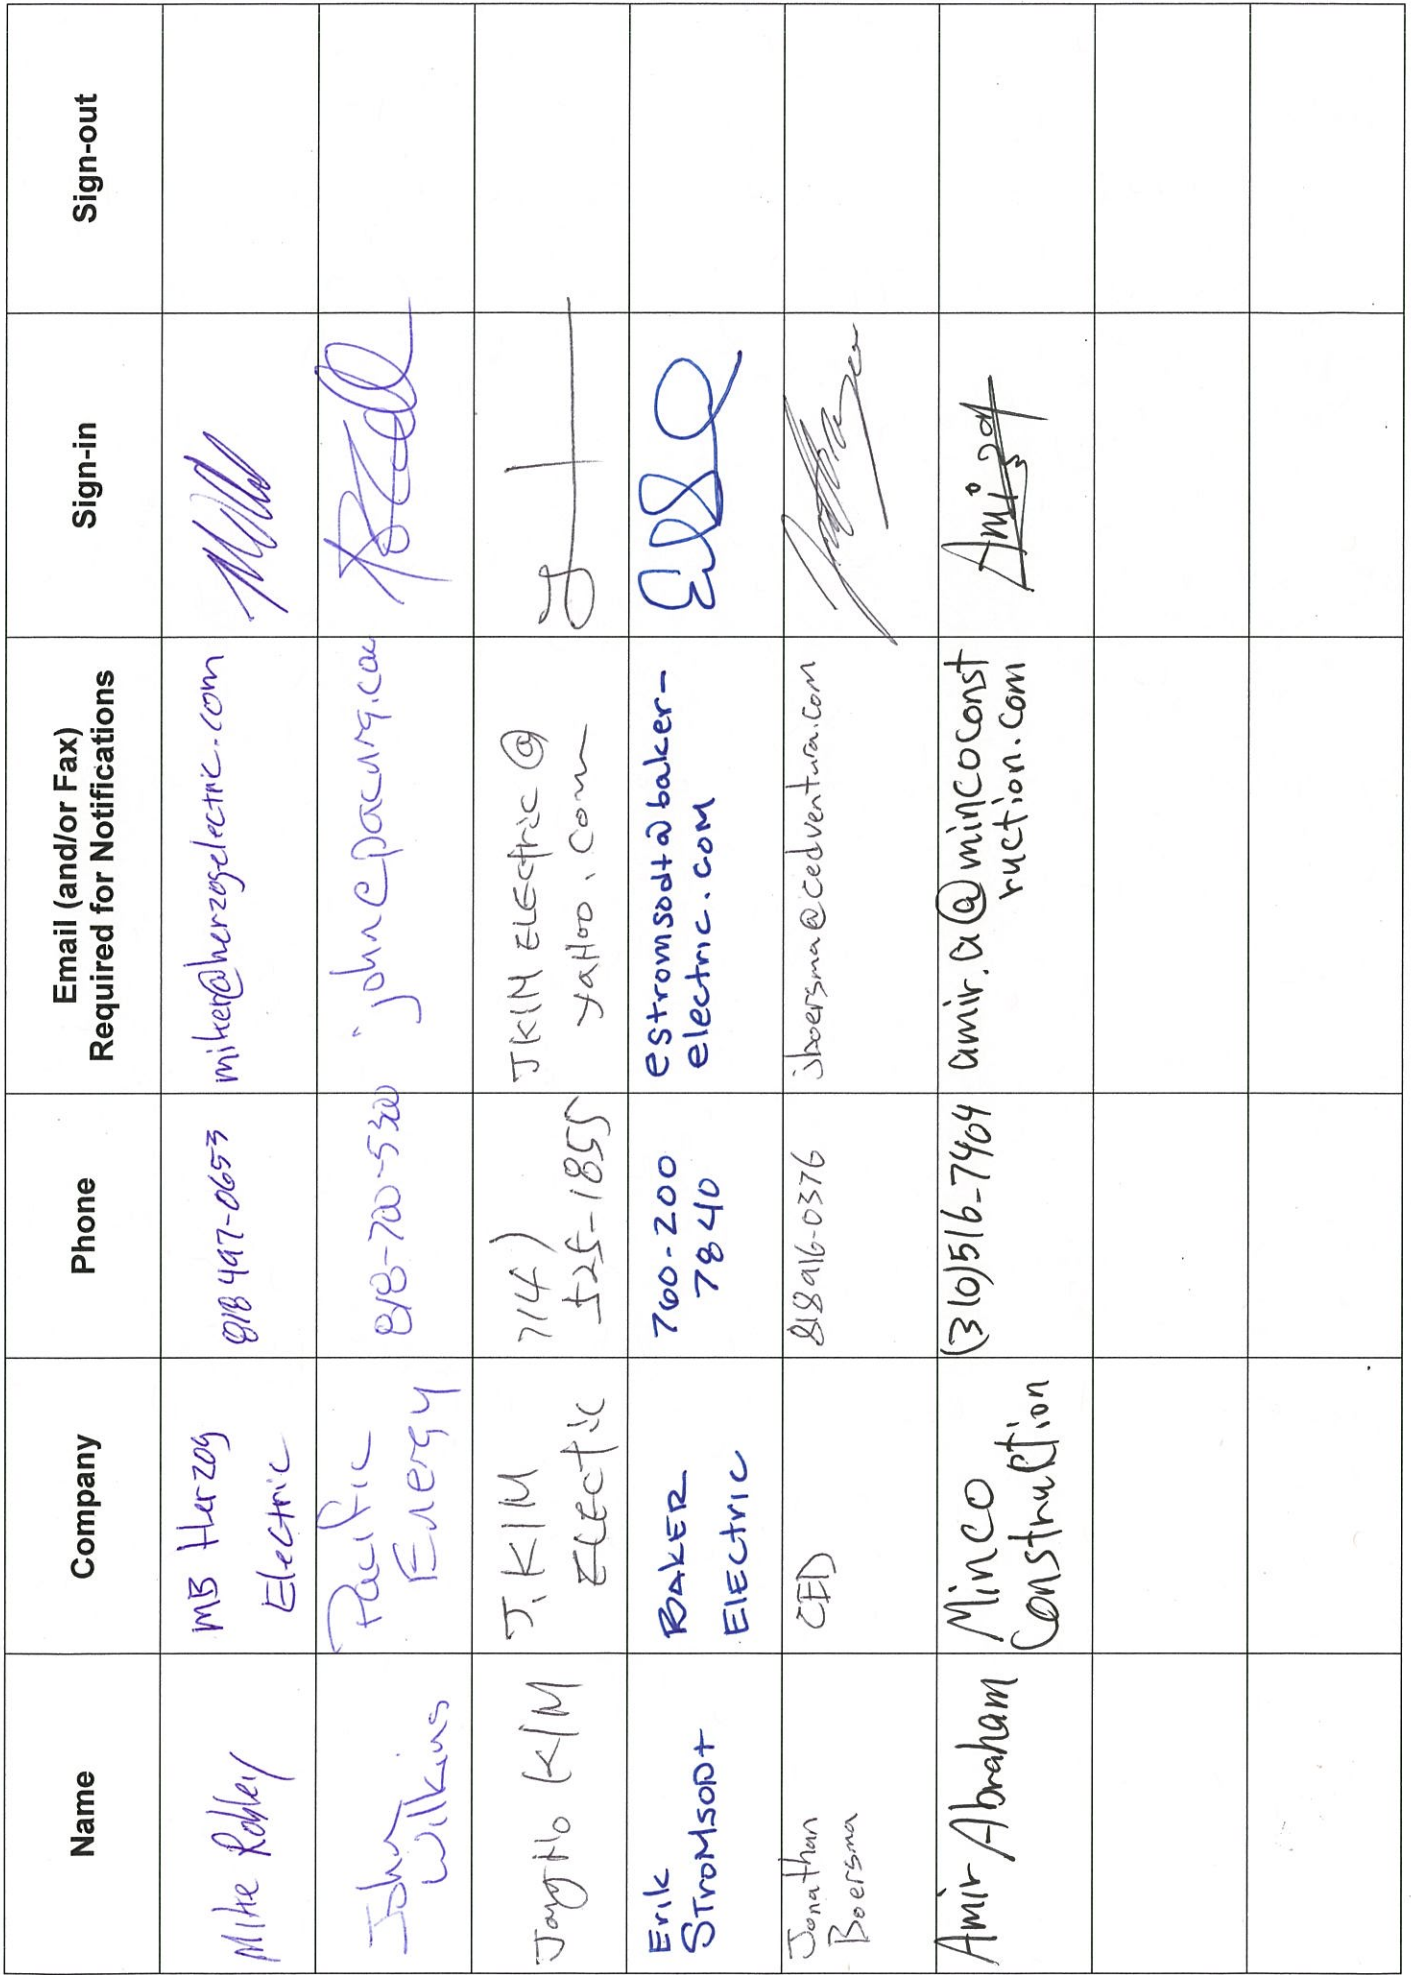 Name
Company
Phone
Email (and/or Fax)
Required for Notifications
Sign-in
Sign-out
Mike Robley
MB Herzog
Electric
818 497-0653
miker@herzogelectric.com
John
Wilkins
Pacific
Energy
818-700-5300
KIM
J. KIM
ELECtic
714)
525-1855
JKIM ELECtric @
yaHoo.com
Erik
STroMsoDt
BAKER
ElEctric
760-200
7840
estromsodt@baker-
electric.coM
Jonathan
Boersma
CED
818 916-0376
jboersma@cedventura.com
Amir Abraham
Minco
Construction
(310)516-7404
amir.a@mincoconst
ruction.com